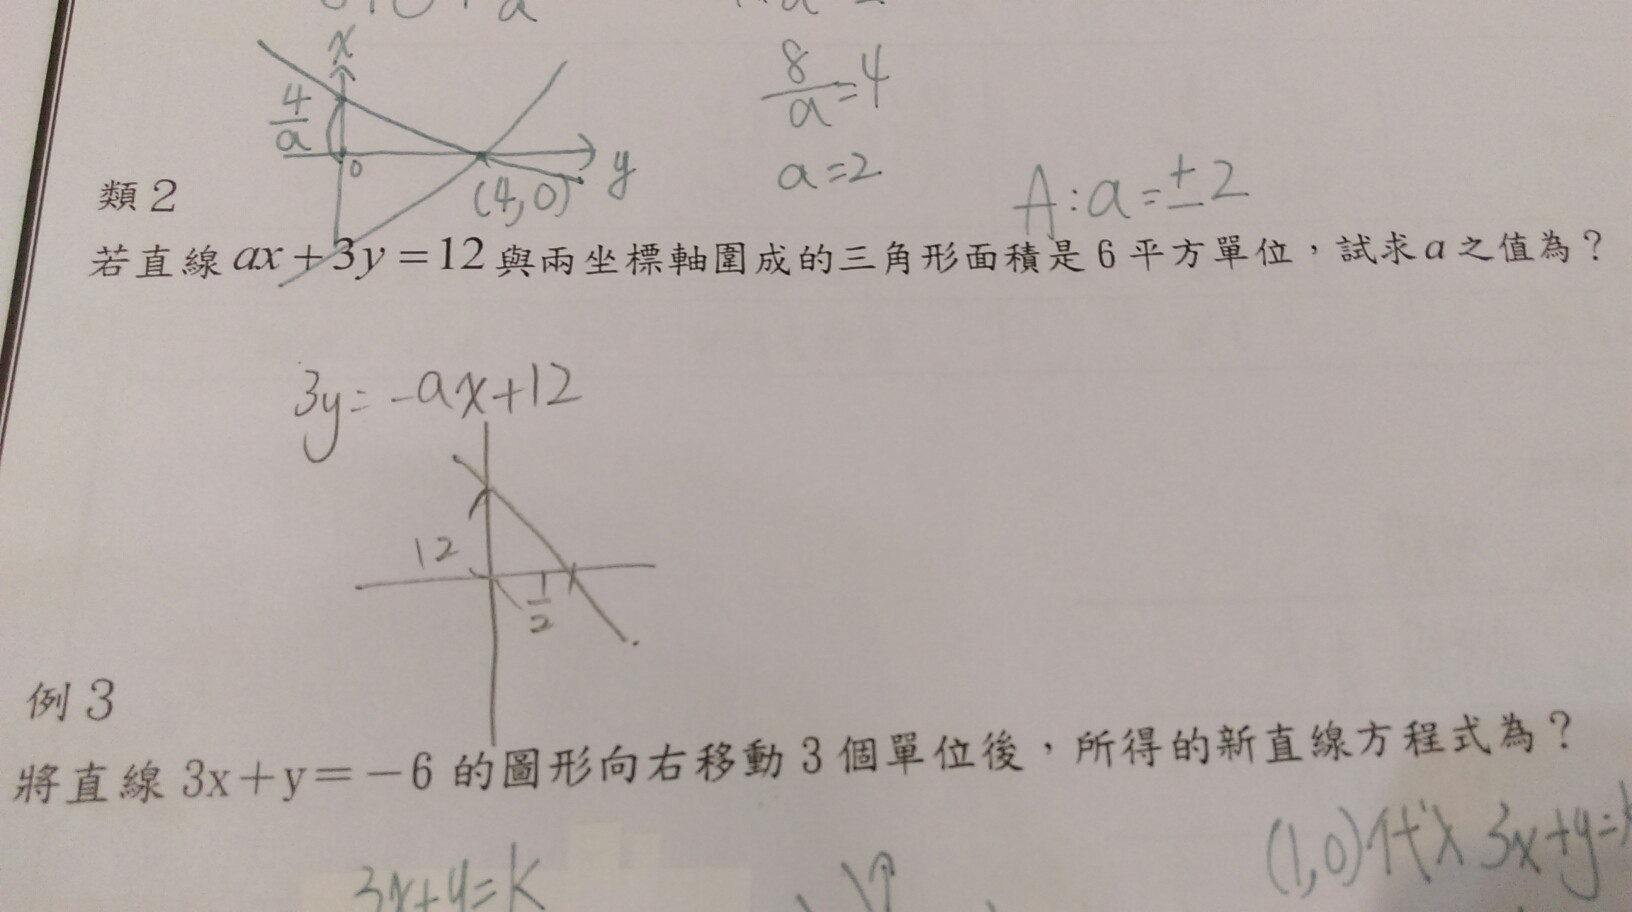 x
4/a
0
y
(4,0)
8/a=4
a=2
A:a=±2
類2
若直線ax+3y=12與兩坐標軸圍成的三角形面積是6平方單位，試求a之值為？
3y=-ax+12
12
1/2
例3
將直線3x+y=-6的圖形向右移動3個單位後，所得的新直線方程式為？
(1,0)代入3x+y=
3x+y=k